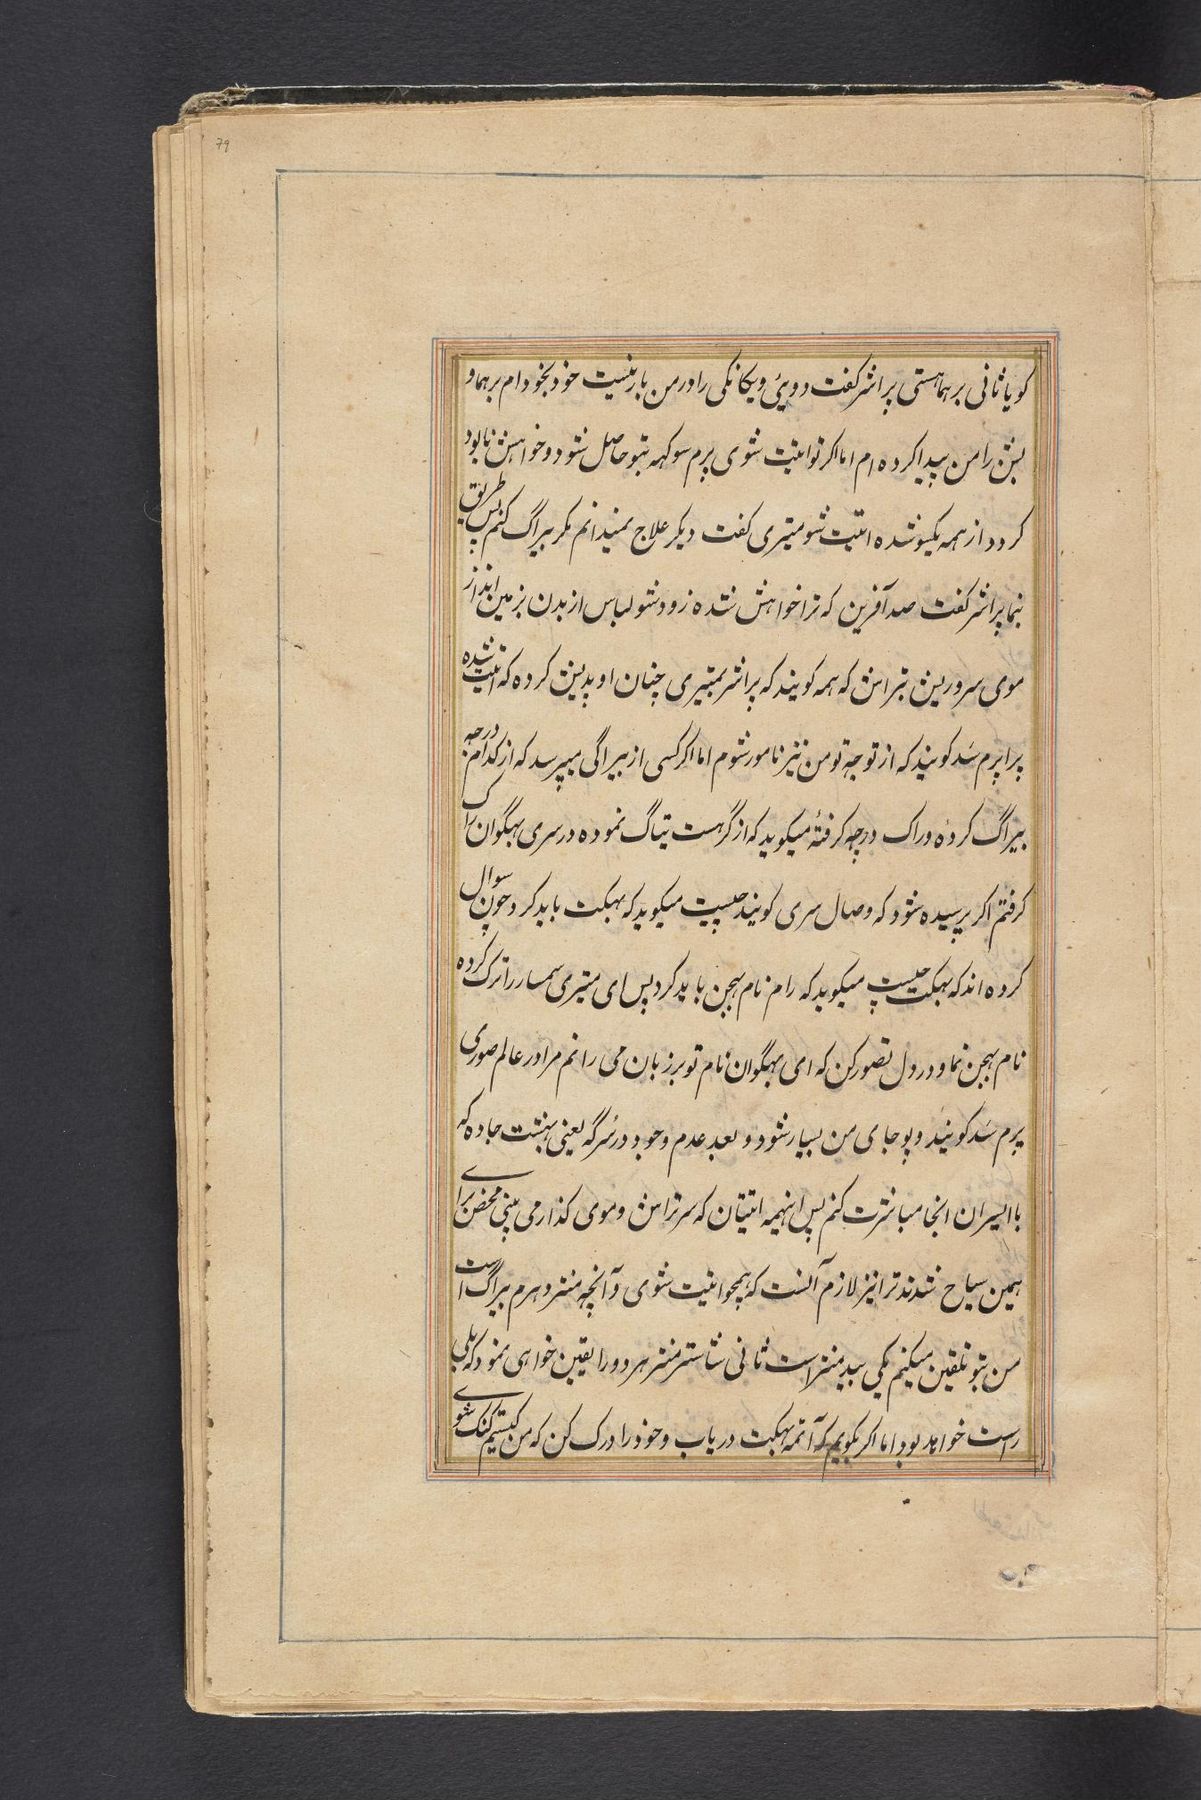 79
کویا ثانی برهما هستی پراشر کفت دوئی ویکانکی را در من بار نیست خود بخود ام برهما و
بشن را من پیدا کرده ام اما اکر تو اتیت شوی پرم سوکهه بتو حاصل شود و خواهش نابود
کردد از همه یکسو شده اتیت شو میتری کفت دیکر علاج نمیدانم مکر بیراگ کنم پس طریق
بنما پراشر کفت صد آفرین که ترا خواهش شده زود شو لباس از بدن بزمین انداز
موی سر و ریش بتراش که همه کویند که پراشر بمیتری چنان اوپدیش کرده که اتیت شده
پراپرم سَد کویند که از توجه تو من نیز نامور شوم اما اکر کسی از بیراگی میپرسد که از کدام درجه
بیراگ کردهٔ و راک درچه کرفتهٔ میکوید که از گرهست تیاگ نموده در سری بهگوان راک
کرفتم اکر پرسیده شود که وصال سری کویند چیست میکوید که بهکت باید کرد چون سوال
کرده اند که بهکت چیست میکوید که رام نام بهجن باید کرد پس ای میتری سمسار را ترک کرده
نام بهجن نما و در دل تصور کن که ای بهگوان نام تو بر زبان می رانم مرا در عالم صوری
پرم سَد کویند و پوجای من بسیار شود و بعد عدم وجود در سُرگه یعنی بهشت جا ده که
با اپسران انجا مباشرت کنم پس اینهمه اتیتان که سر تراش و موی کذار می بینی محض برای
همین سیاح شدند ترا نیز لازم آنست که همچو اتیت شوی و آنچه منتر دهرم بیراگ است
من بتو تلقین میکنم یکی بید منتر است ثانی شاستر منتر هر دو را یقین خواهی نمود که بلی
راست خواهد بود اما اکر بکویم که آتمه بهکت دریاب و خود را درک کن که من کیستم کنک شوی